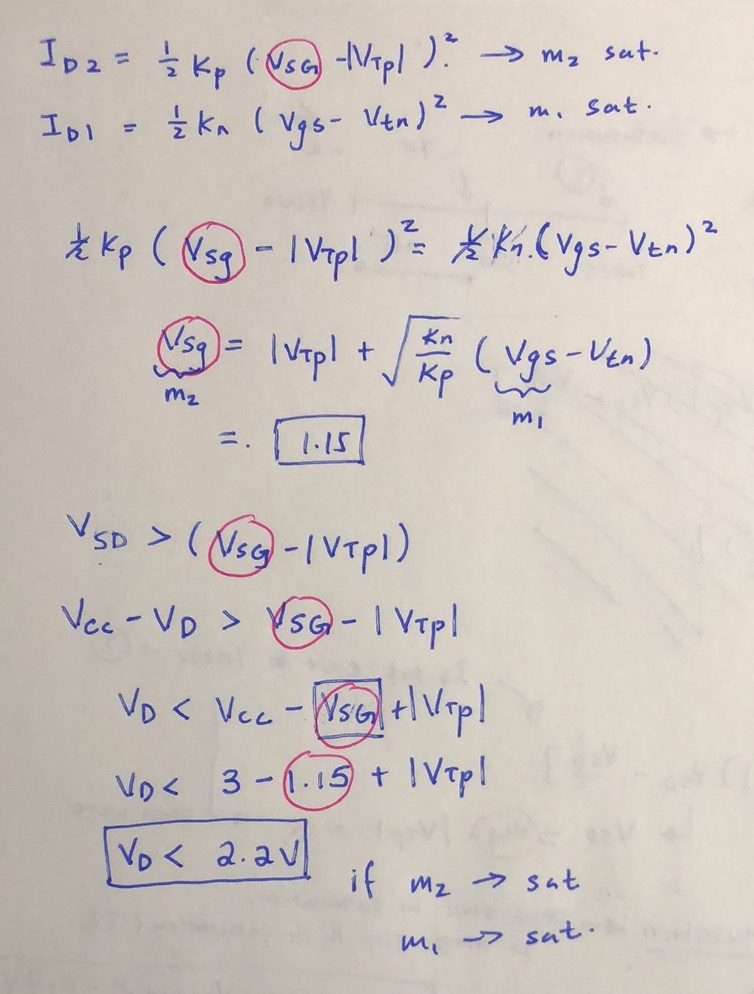 I_D2 = ½ Kp ( V_SG - |V_Tp| )².  → m₂ sat.
I_D1 = ½ Kn ( Vgs - Vtn )² → m₁ sat.
½ Kp ( Vsg - |V_Tp| )² = ½ Kn. ( Vgs - Vtn )²
Vsg = |V_Tp| + √(Kn/Kp) ( Vgs - Vtn )
m₂ m₁
=. 1.15
V_SD > ( V_SG - |V_Tp| )
Vcc - V_D > V_SG - |V_Tp|
V_D < Vcc - V_SG + |V_Tp|
V_D < 3 - 1.15 + |V_Tp|
V_D < 2.2V
if m₂ → sat
m₁ → sat.